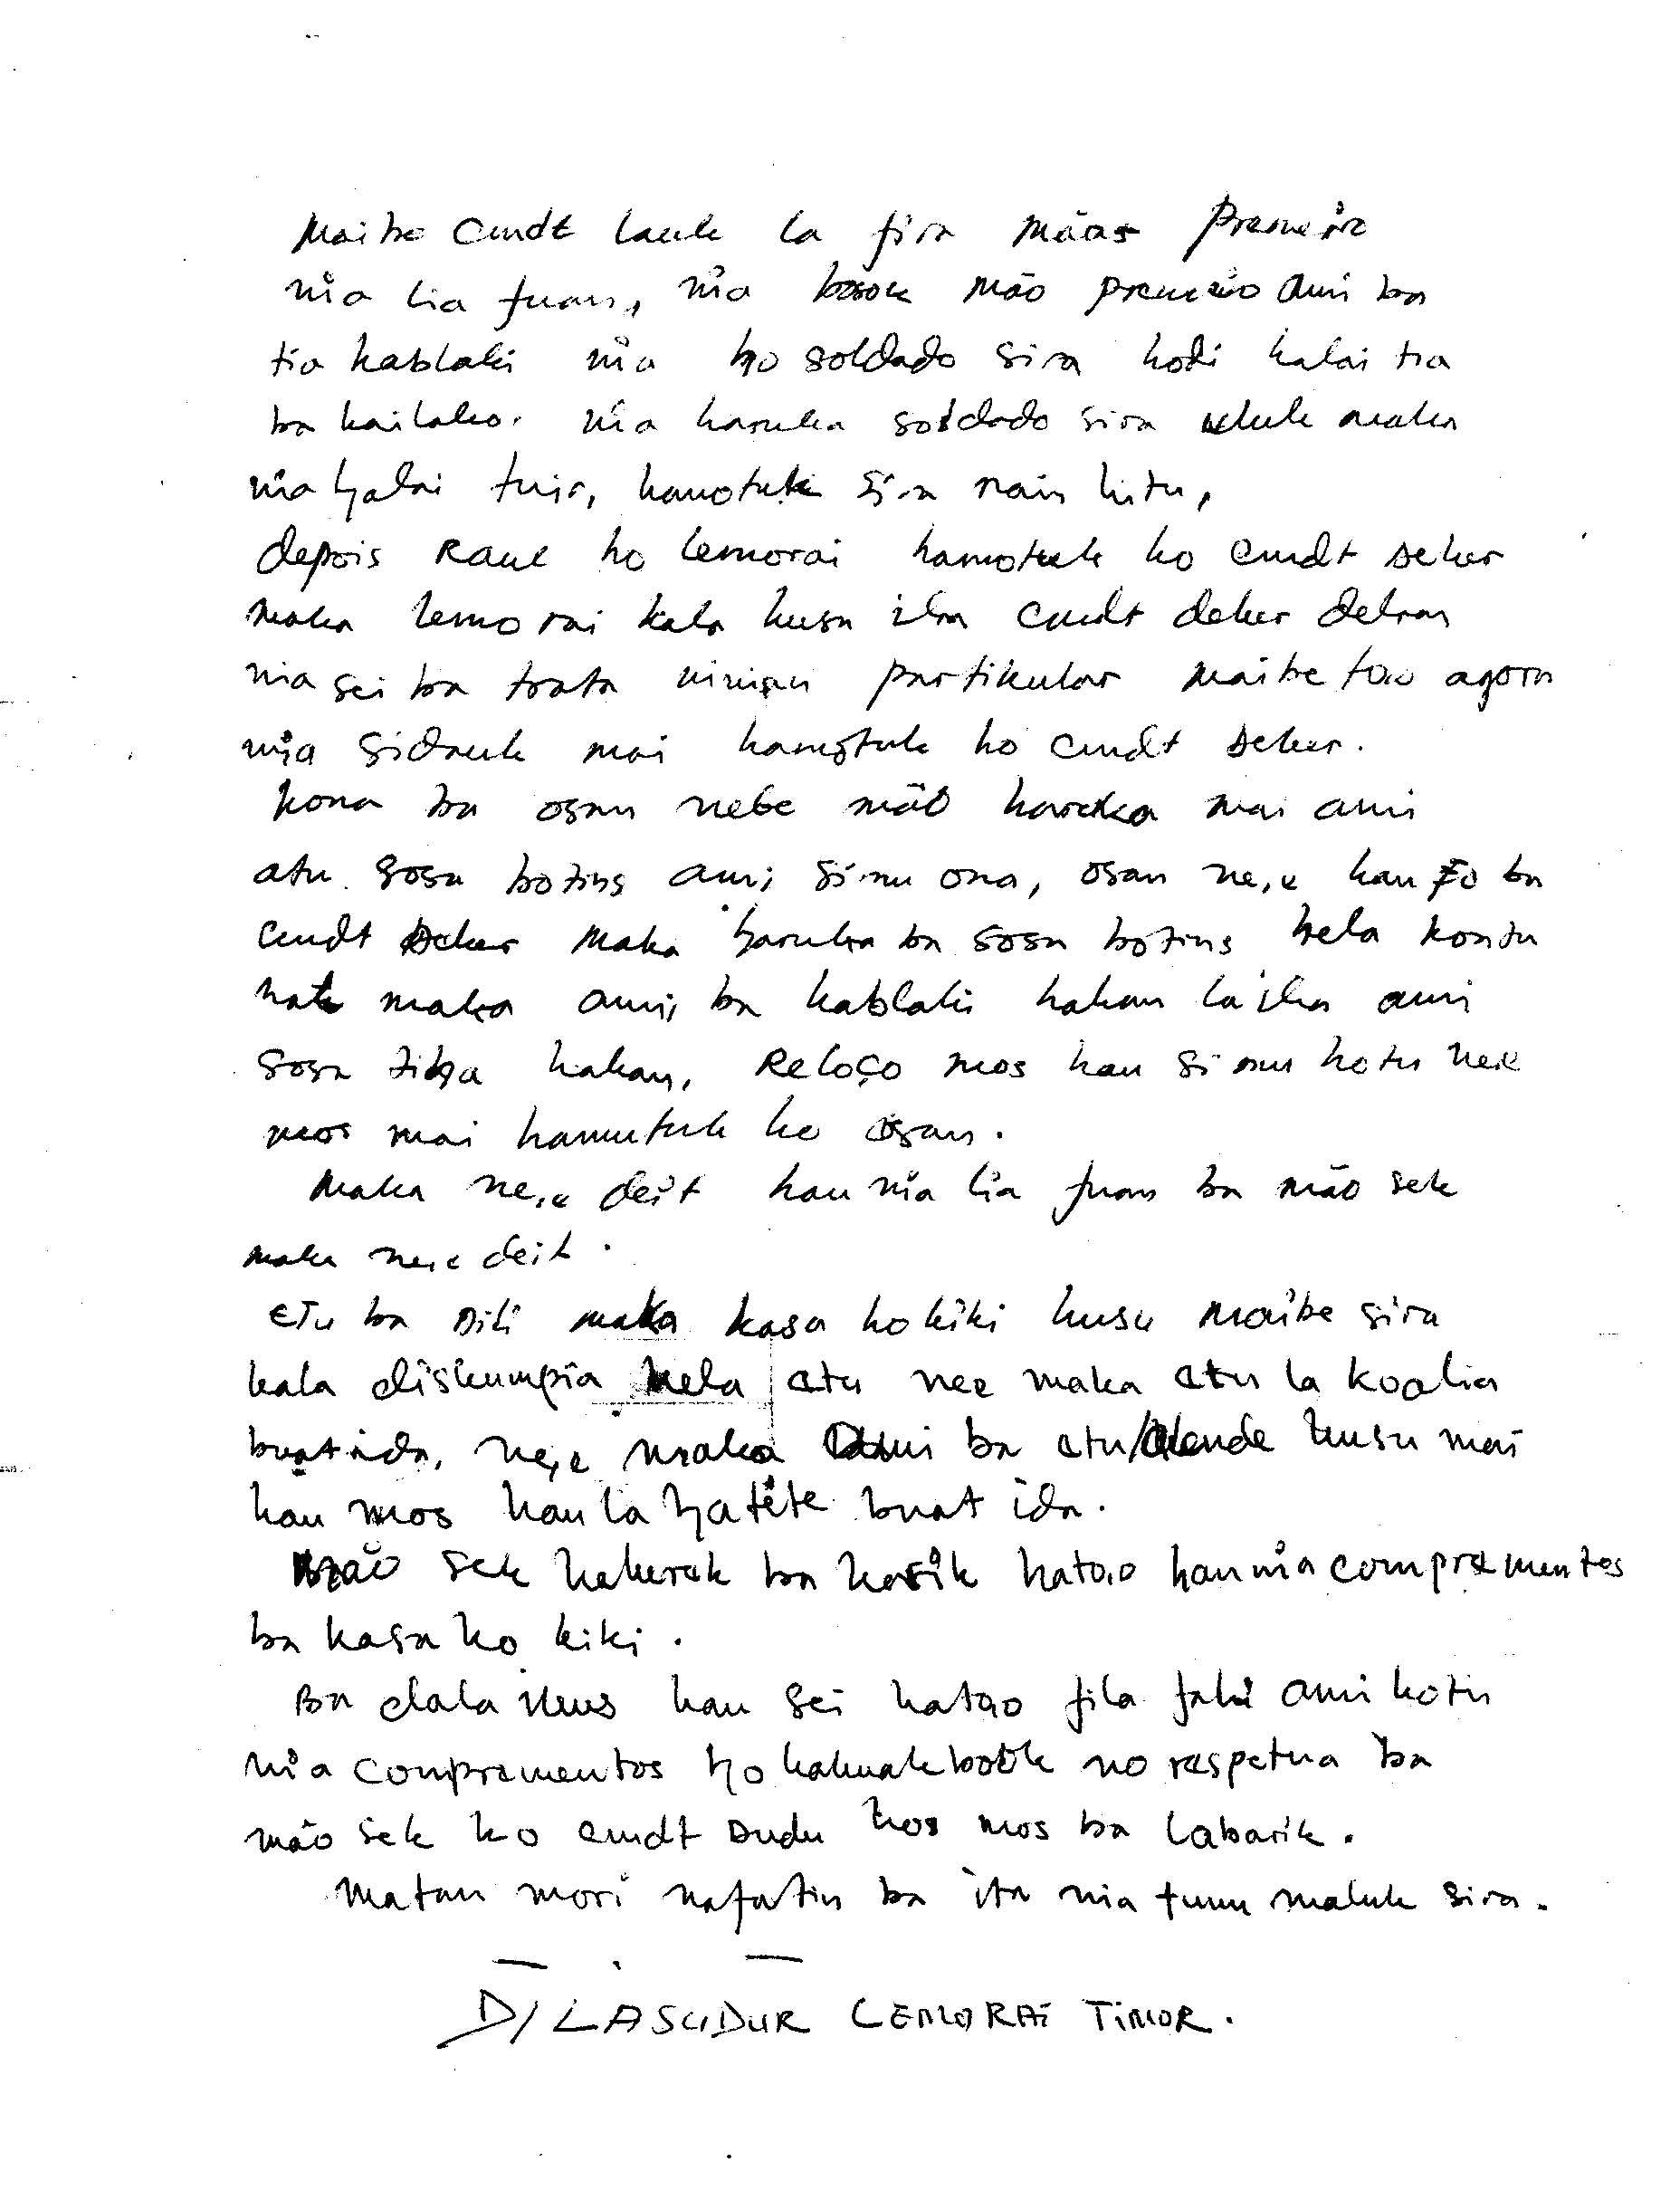 Maibe Cmdt Lauk la fira mãos Premeiro
nia lia fuan, nia bosok mão premeiro ami ba
tia kablaki nia ho soldado sira hodi halai tia
ba kailako. nia haruka soldado sira uluk maka
nia halai tuir, hamotuk sira nain hitu,
depois Raul ho lemorai hamotuk ho Cmdt Deker
maka lemorai kala husu ila Cmdt deker dehan
nia sei ba trata ninian partikular maibe too agora
nia sidauk mai hamotuk ho Cmdt Deker.
kona ba osan nebe mão haruka mai ami
atu sosa botins ami simu ona, osan ne,e hau Fo ba
Cmdt Deker maka haruka ba sosa botins hela kontu
hat maka ami ba kablaki hahan la iha ami
sosa tiha hahan, Reloço mos hau simu hotu nee
mos mai hamutuk ho osan.
Maka ne,e deit hau nia lia fuan ba mão sek
maka ne,e deit.
etu ba Dili maka kasa ho kiki husu maibe sira
kala diskumpia hela etu nee maka etu la koalia
buat ida, ne,e maka ba etu husu mai
hau mos hau la hatête buat ida.
mão sek hakerek ba kasik hatao hau nia comprementos
ba kasa ho kiki.
Ba dala ikus hau sei hatao fila fali ami hotu
nia comprementos ho hakuak boot no respetua ba
mão sek ho cmdt Dudu hos mos ba labarik.
Matan mori nafatin ba ita nia funu maluk sira.
D/ LASUDUR LEMORAI TIMOR.